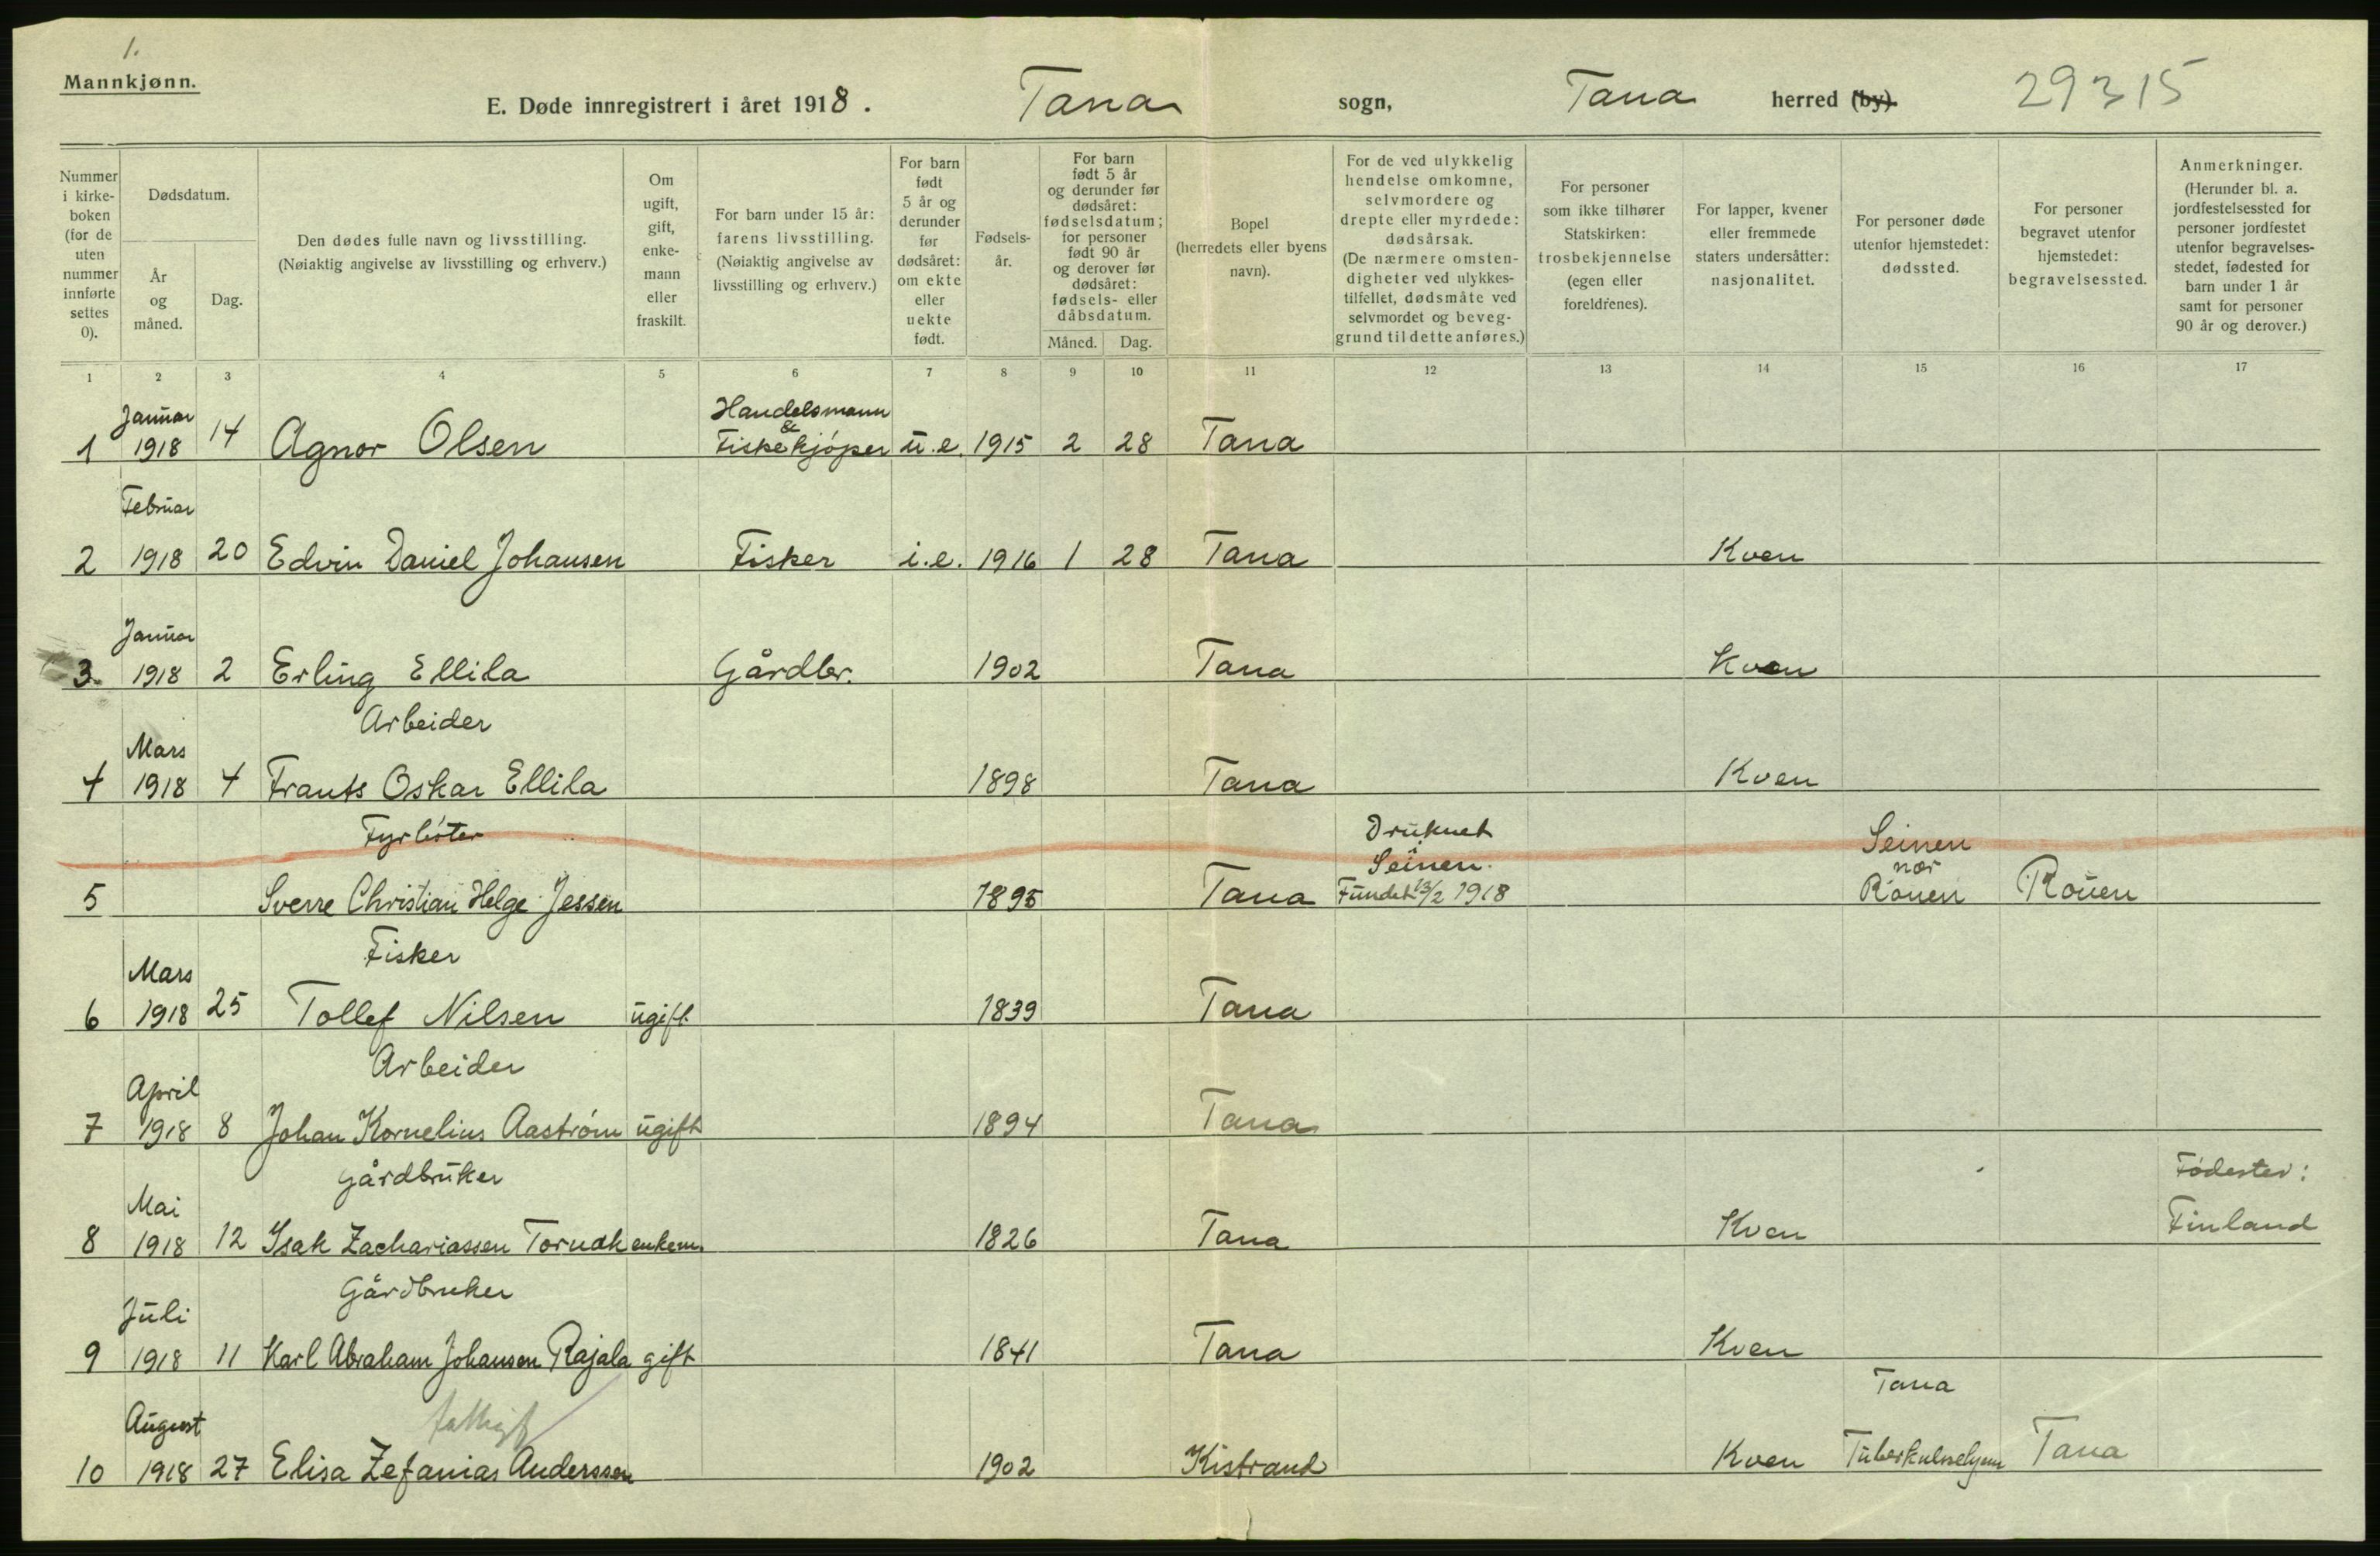 1.
Mannkjønn.
E. Døde innregistrert i året 1918. Tana sogn, Tana herred (by). 29315
Nummer i kirke- boken (for de uten nummer innførte settes 0).
Dødsdatum.
År og måned.
Dag.
Den dødes fulle navn og livsstilling.
(Nøiaktig angivelse av livsstilling og erhverv.)
Om ugift, gift, enke- mann eller fraskilt.
For barn under 15 år: farens livsstilling. (Nøiaktig angivelse av livsstilling og erhverv.)
For barn født 5 år og derunder før dødsåret: om ekte eller uekte født.
Fødsels- år.
For barn født 5 år og derunder før dødsåret: fødselsdatum; for personer født 90 år og derover før dødsåret: fødsels- eller dåbsdatum.
Måned. Dag.
Bopel (herredets eller byens navn).
For de ved ulykkelig hendelse omkomne, selvmordere og drepte eller myrdede: dødsårsak. (De nærmere omsten- digheter ved ulykkes- tilfellet, dødsmåte ved selvmordet og beveg- grund til dette anføres.)
For personer som ikke tilhører Statskirken: trosbekjennelse (egen eller foreldrenes).
For lapper, kvener eller fremmede staters undersåtter: nasjonalitet.
For personer døde utenfor hjemstedet: dødssted.
For personer begravet utenfor hjemstedet: begravelsessted.
Anmerkninger. (Herunder bl. a. jordfestelsessted for personer jordfestet utenfor begravelses- stedet, fødested for barn under 1 år samt for personer 90 år og derover.)
1 2 3 4 5 6 7 8 9 10 11 12 13 14 15 16 17
Januar Handelsmann &
1 1918 14 Agnor Olsen Fiskekjøper u.e. 1915 2 28 Tana
Februar
2 1918 20 Edvin Daniel Johansen Fisker i.e. 1916 1 28 Tana Kven
Januar
3 1918 2 Erling Ellila Gårdbr. 1902 Tana Kven
Mars Arbeider
4 1918 4 Frants Oskar Ellila 1898 Tana Kven
Fyrbøter Druknet i Seinen. Seinen nær
5 Sverre Christian Helge Jessen 1895 Tana Fundet 13/2 1918 Rouen Rouen
Mars Fisker
6 1918 25 Tollef Nilsen ugift 1839 Tana
April Arbeider
7 1918 8 Johan Kornelius Aastrøm ugift 1894 Tana
Mai Gårdbruker Fødested:
8 1918 12 Isak Zachariassen Tornak enkem. 1826 Tana Kven Finland
Juli Gårdbruker
9 1918 11 Karl Abraham Johansen Rajala gift 1841 Tana Kven
August Tana
10 1918 27 Elisa Zefanias Anderssen 1902 Kistrand Kven Tuberkulosehjem Tana